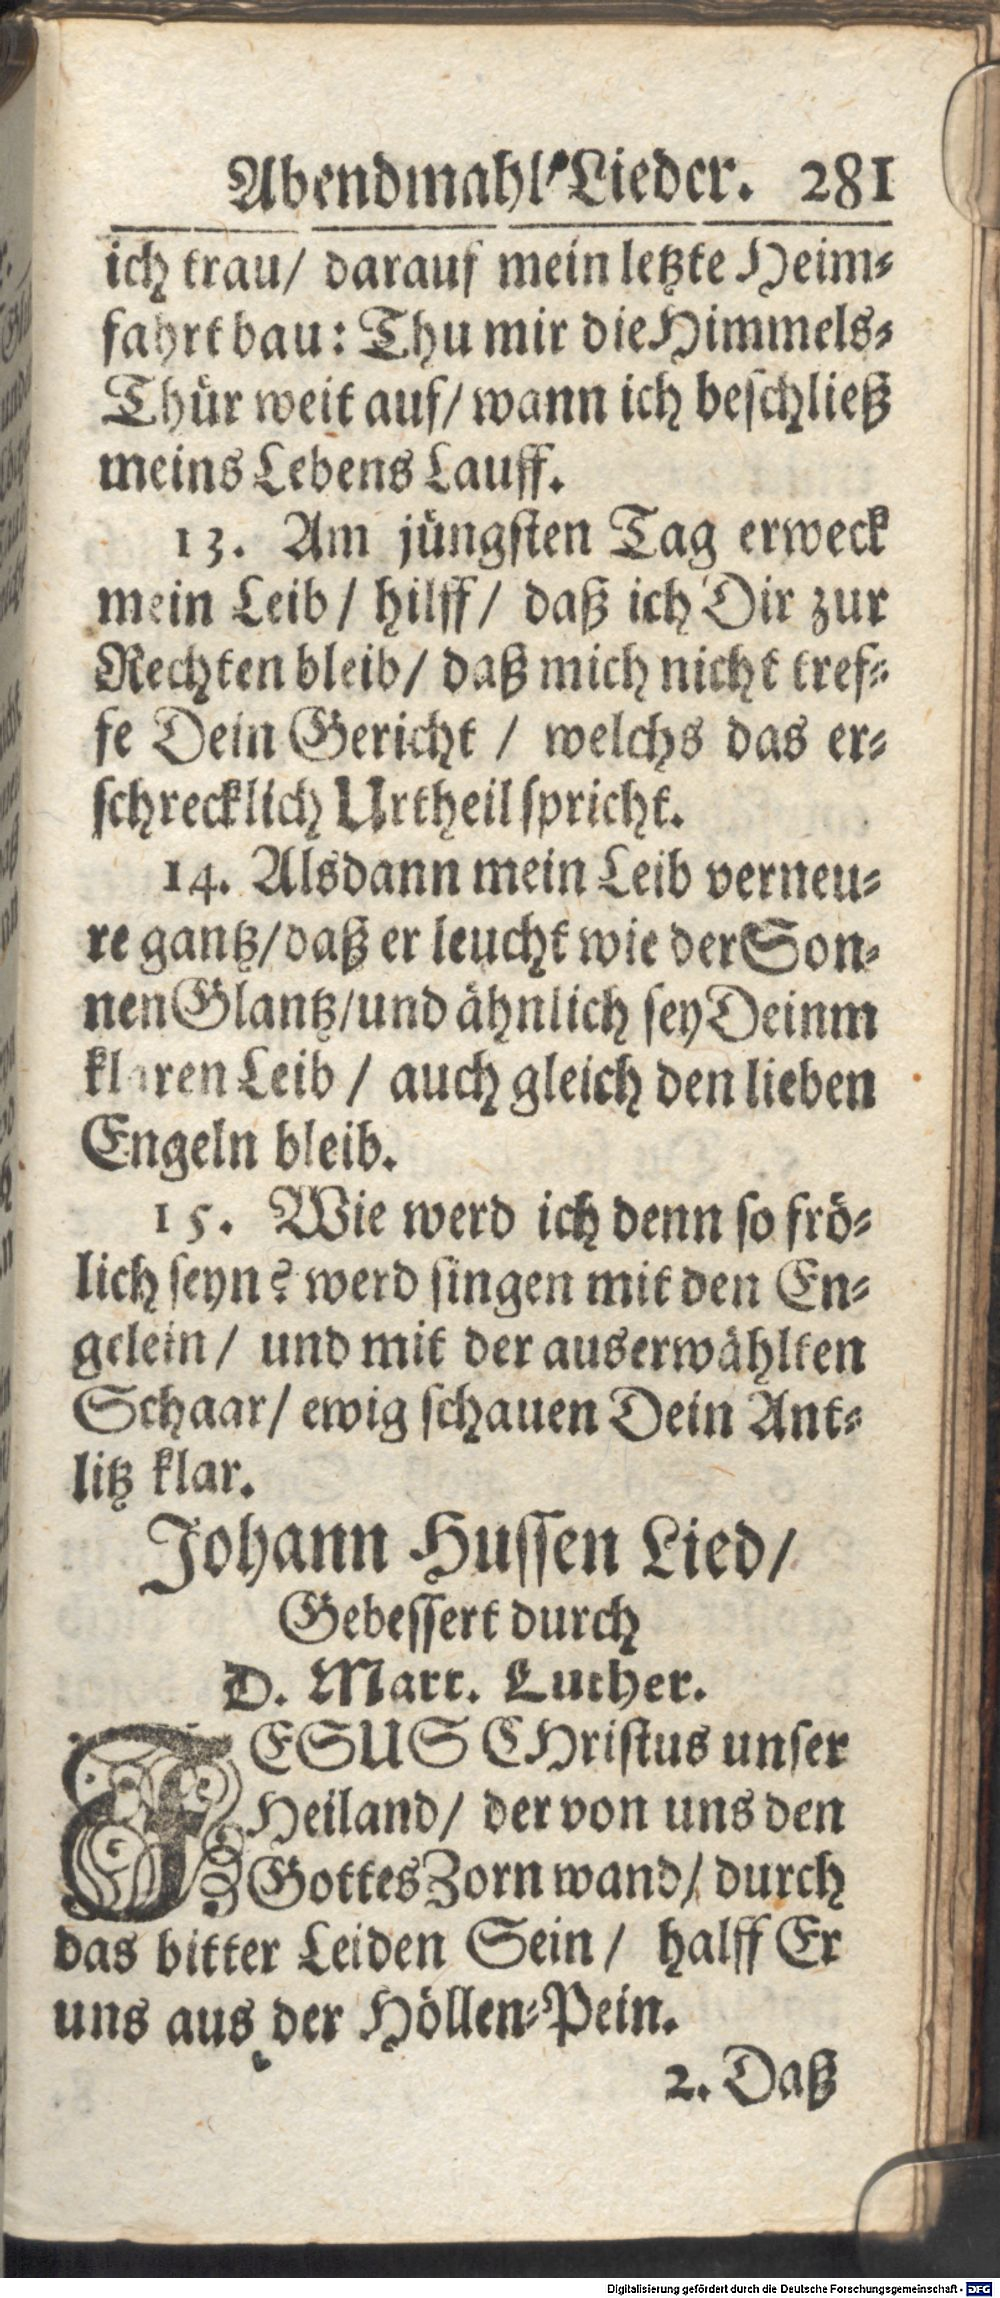 Abendmahl-Lieder. 281
ich trau/ darauf mein letzte Heim-
fahrt bau: Thu mir die Himmels-
Thür weit auf/ wann ich beschließ
meins Lebens Lauff.
13. Am jüngsten Tag erweck
mein Leib / hilff / daß ich Dir zur
Rechten bleib/ daß mich nicht tref-
fe Dein Gericht / welchs das er-
schrecklich Urtheil spricht.
14. Alsdann mein Leib verneu-
re gantz/ daß er leucht wie der Son-
nen Glantz/ und ähnlich sey Deinm
klaren Leib / auch gleich den lieben
Engeln bleib.
15. Wie werd ich denn so frö-
lich seyn? werd singen mit den En-
gelein/ und mit der auserwählten
Schaar/ ewig schauen Dein Ant-
litz klar.
Johann Hussen Lied/
Gebessert durch
D. Mart. Luther.
JESUS CHristus unser
Heiland/ der von uns den
Gottes Zorn wand/ durch
das bitter Leiden Sein / halff Er
uns aus der Höllen-Pein.
2. Daß
Digitalisierung gefördert durch die Deutsche Forschungsgemeinschaft - DFG